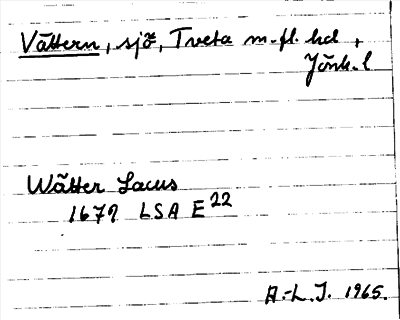 Vättern, sjö, Tveta m.fl. hd,
Jönk. l
Wätter Lacus
1679 LSA E22
A.-L. J. 1965.